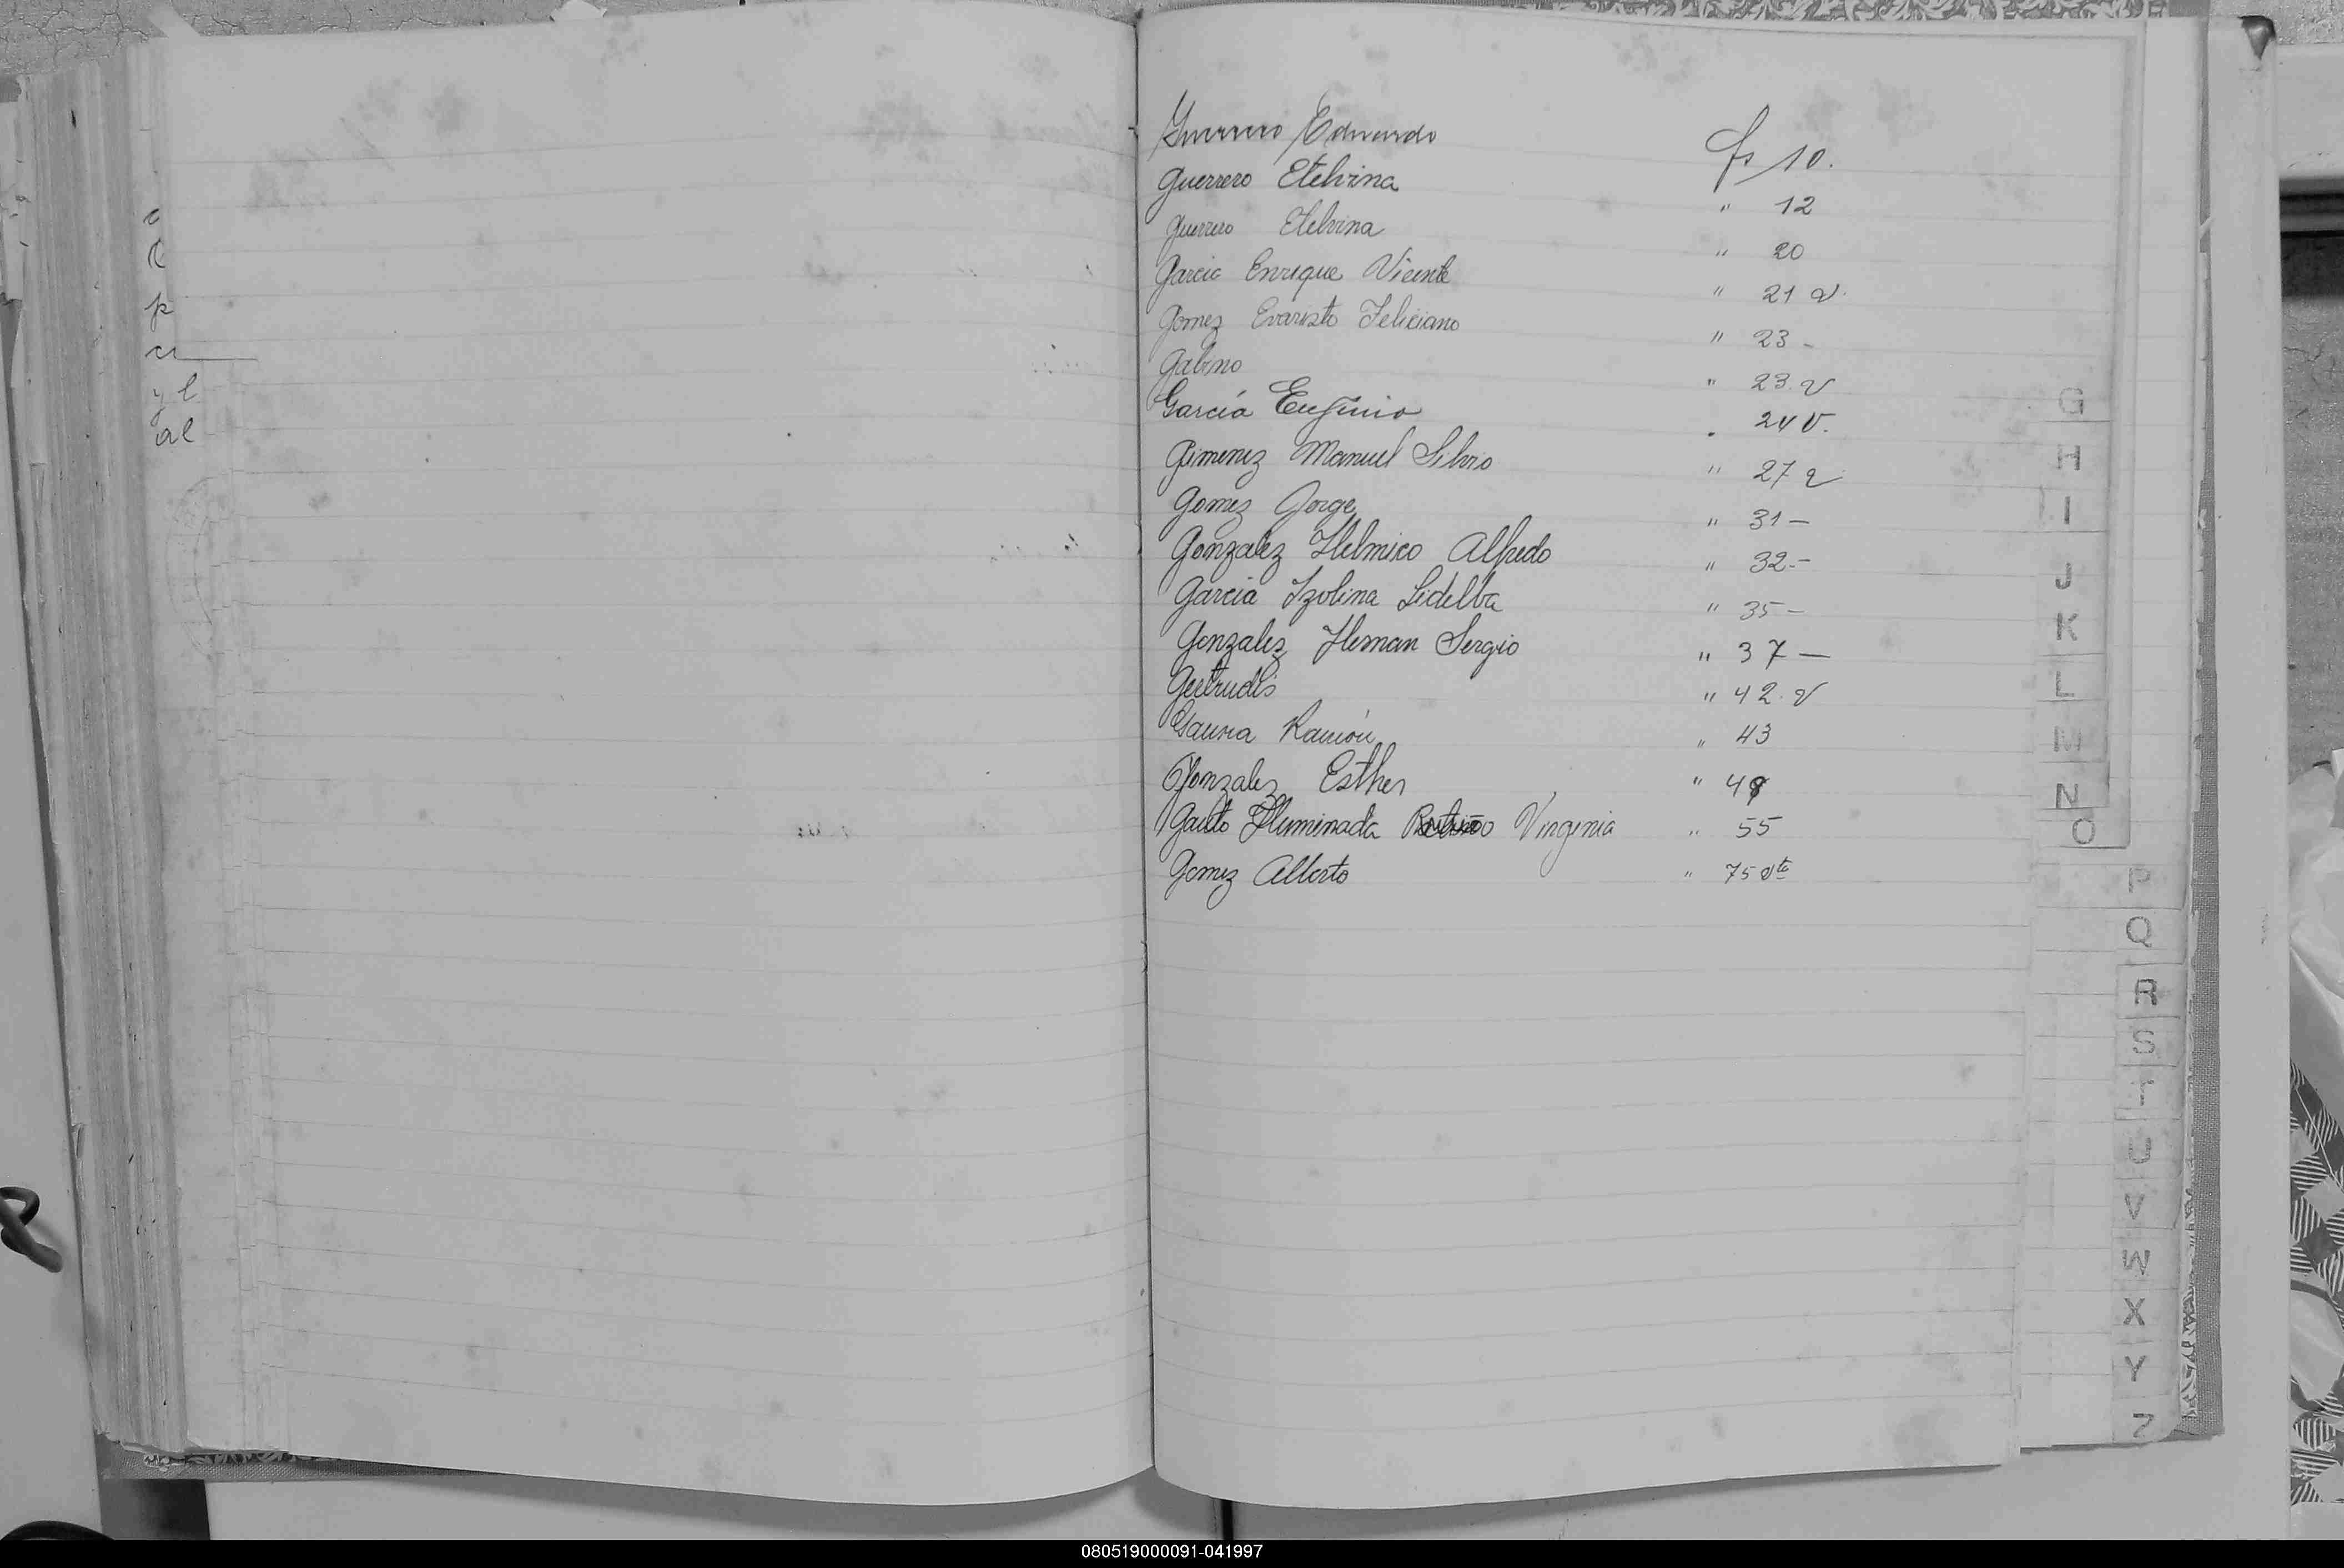 Guerrero Eduardo fs 10.
Guerrero Etelvina " 12
Guerrero Etelvina " 20
Garcia Enrique Vicente " 21 v.
Gomez Evaristo Feliciano " 23 -
Gabino " 23. v
García Eugenio . 24 v.
Gimenez Manuel Silvio " 27 v
Gomez Jorge " 31 -
Gonzalez Helmiro Alfredo " 32.-
Garcia Izolina Lidelba " 35 -
Gonzalez Hernan Sergio " 37 -
Gertrudis " 42. v
Gauna Ramón " 43
Gonzalez Esther " 49
Gauto Iluminada Virginia " 55
Gomez Alberto " 75 vta
y l
al
G
H
I
J
K
L
M
N
O
P
Q
R
S
T
U
V
W
X
Y
Z
080519000091-041997